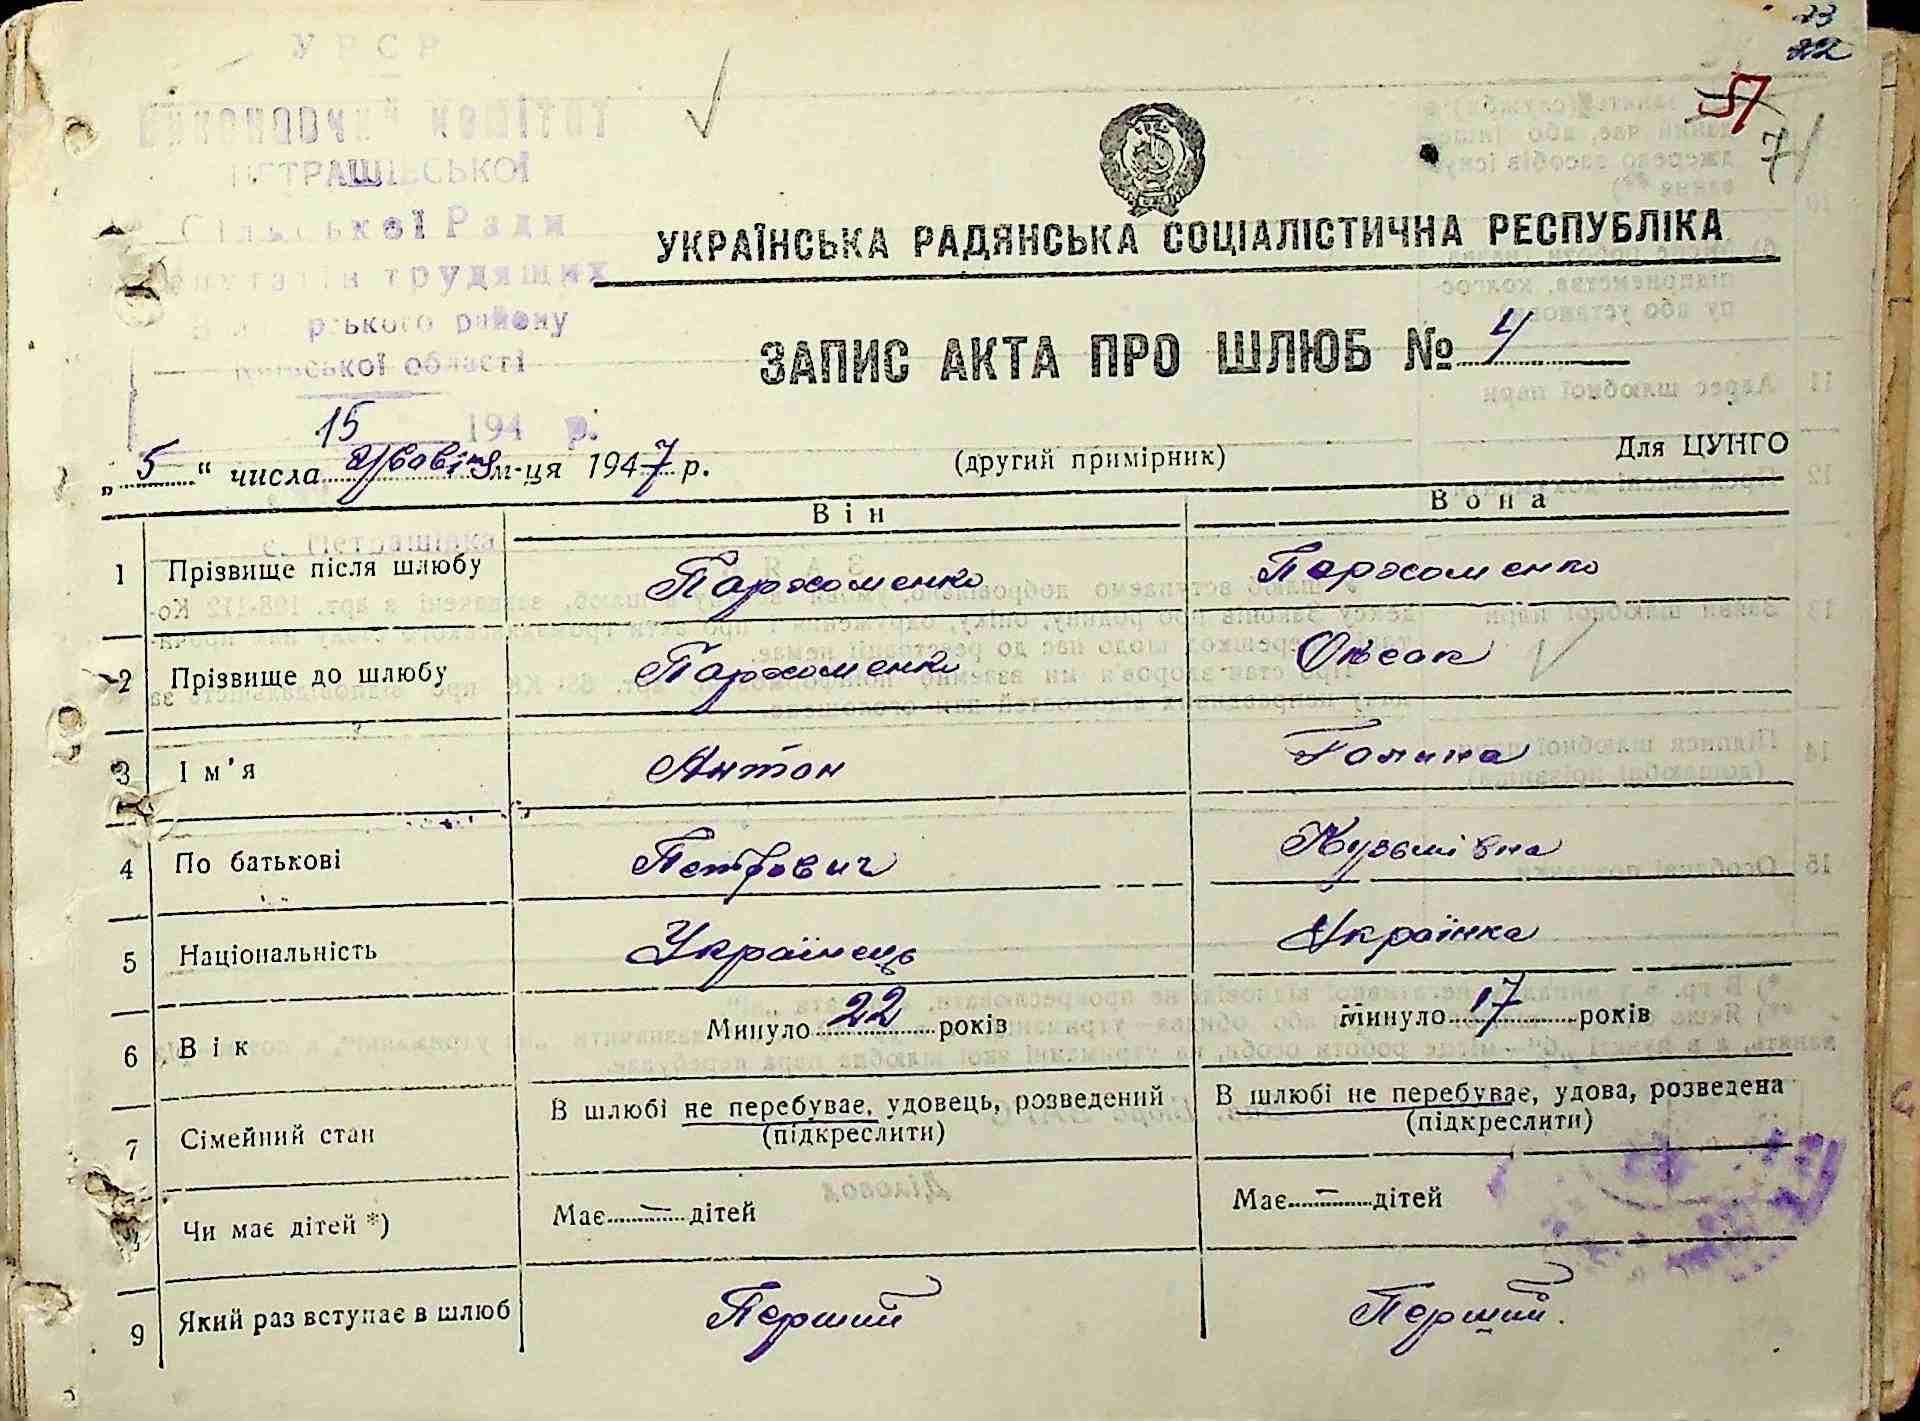 23
22
57
71
УРСР
Виконавчий комітет
ПЕТРАШІВСЬКОЇ
Сільської Ради
депутатів трудящих
рського району
ської області
15 194 р.
с. Петрашівка
УКРАЇНСЬКА РАДЯНСЬКА СОЦІАЛІСТИЧНА РЕСПУБЛІКА
ЗАПИС АКТА ПРО ШЛЮБ № 4
„5“ числа м-ця 1947 р. (другий примірник) Для ЦУНГО
Він Вона
1 Прізвище після шлюбу Пархоменко Пархоменко
2 Прізвище до шлюбу Пархоменко
3 Ім'я Антон Галина
4 По батькові Петрович Кузьмівна
5 Національність Українець Українка
6 Вік Минуло 22 років Минуло 17 років
7 Сімейний стан В шлюбі не перебуває, удовець, розведений (підкреслити) В шлюбі не перебуває, удова, розведена (підкреслити)
Чи має дітей *) Має — дітей Має — дітей
9 Який раз вступає в шлюб Перший Перший.